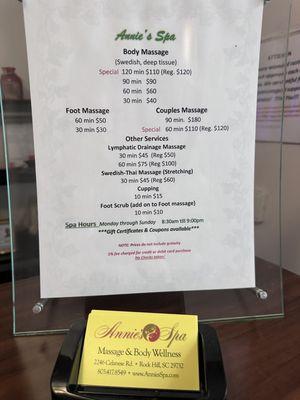 Annie's Spa
Body Massage
(Swedish, deep tissue)
Special 120 min $110 (Reg. $120)
90 min $90
60 min $60
30 min $40
Foot Massage Couples Massage
60 min $50 90 min. $180
30 min $30 Special 60 min $110 (Reg. $120)
Other Services
Lymphatic Drainage Massage
30 min $45 (Reg $50)
60 min $75 (Reg $100)
Swedish-Thai Massage (Stretching)
30 min $45 (Reg $60)
Cupping
10 min $15
Foot Scrub (add on to Foot massage)
10 min $10
Spa Hours Monday through Sunday 8:30am till 9:00pm
***Gift Certificates & Coupons available***
NOTE: Prices do not include gratuity
5% fee charged for credit or debit card purchase
No Checks taken!
Annie's Spa
Massage & Body Wellness
2246 Celanese Rd. • Rock Hill, SC 29732
803.417.8549 • www.AnniesSpa.com